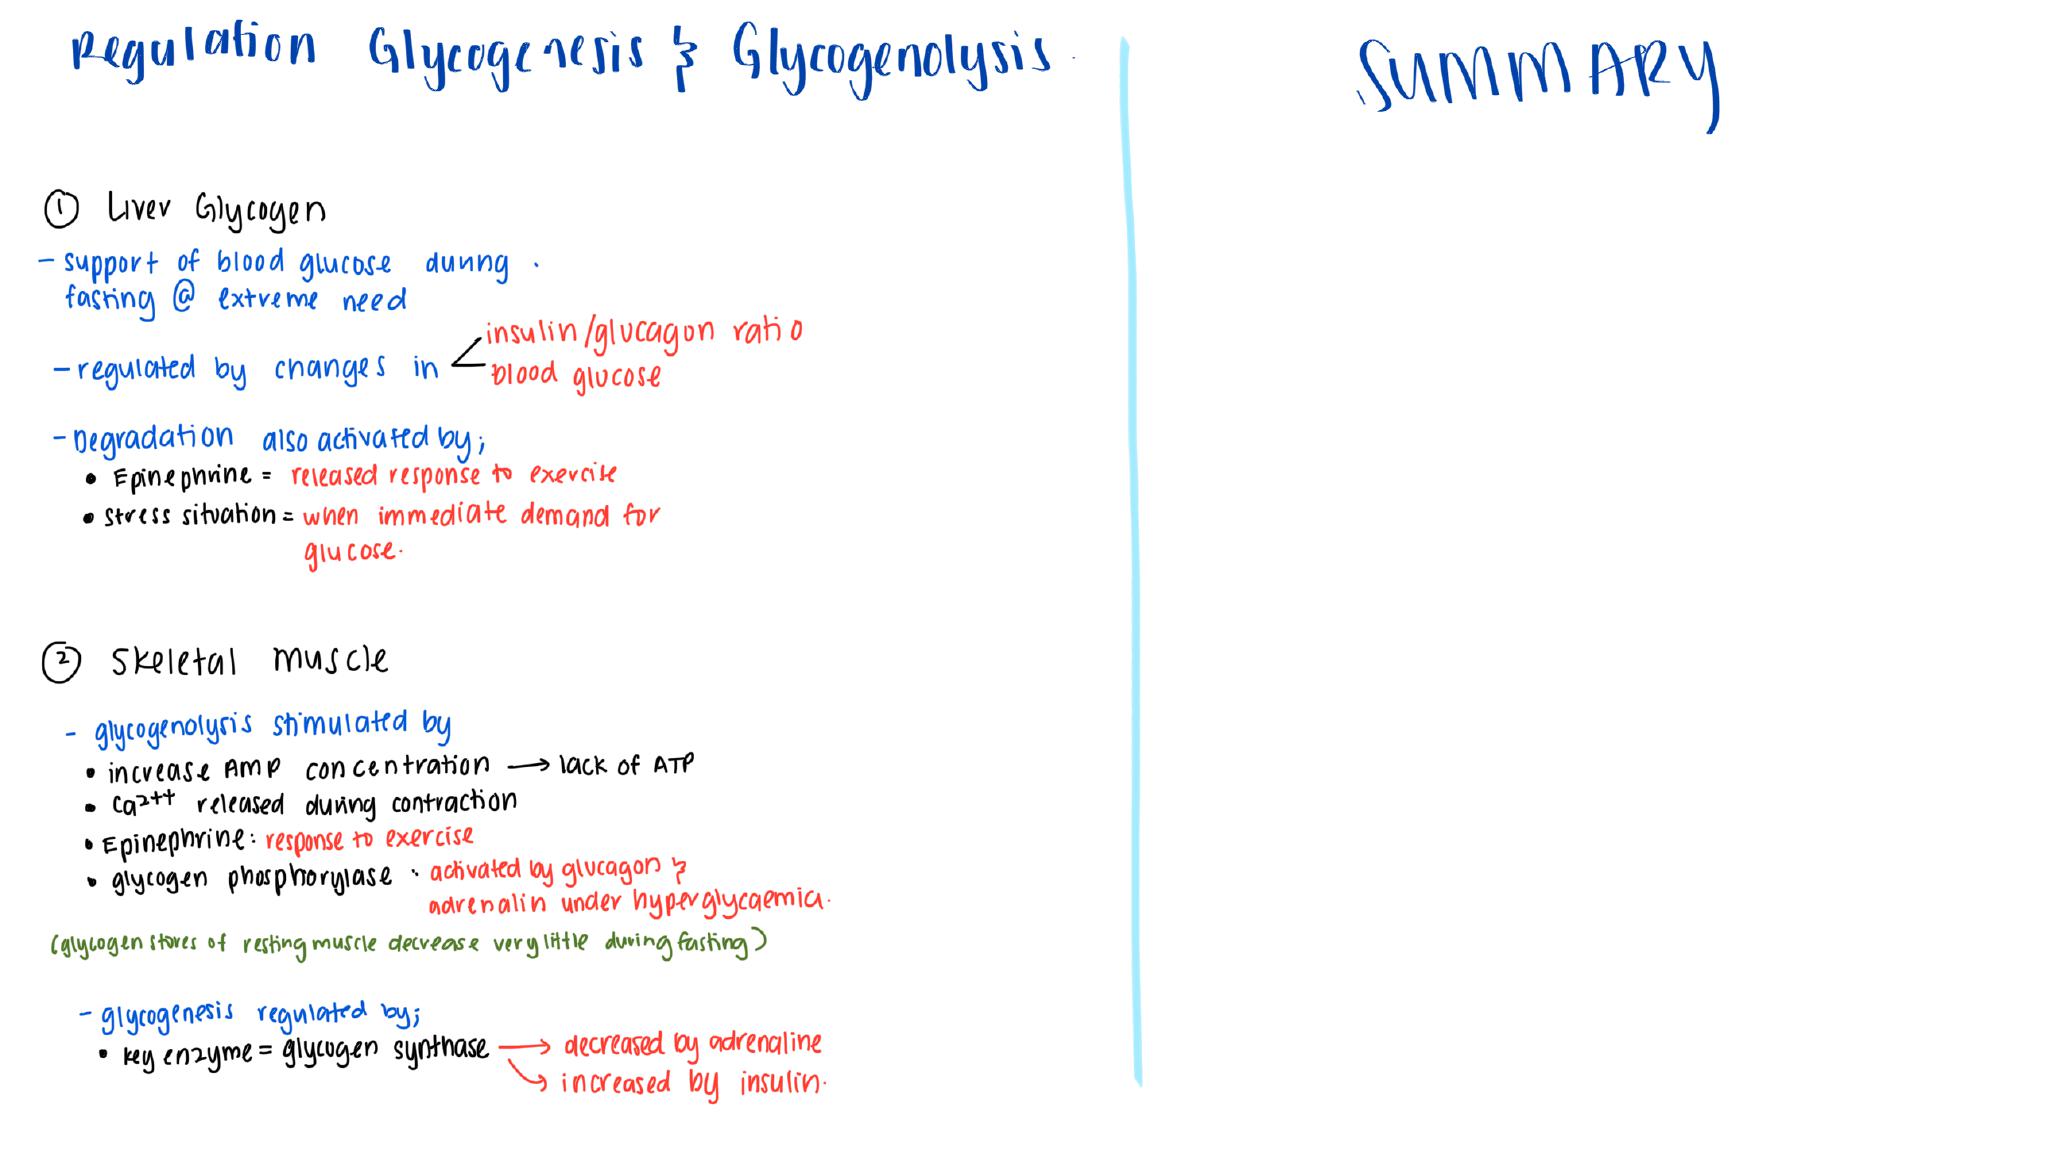 Regulation Glycogenesis & Glycogenolysis
SUMMARY
① Liver Glycogen
- support of blood glucose during
fasting @ extreme need
- regulated by changes in
insulin/glucagon ratio
blood glucose
- Degradation also activated by;
• Epinephrine = released response to exercise
• stress situation = when immediate demand for
glucose.
② Skeletal muscle
- glycogenolysis stimulated by
• increase AMP concentration → lack of ATP
• Ca2++ released during contraction
• Epinephrine: response to exercise
• glycogen phosphorylase : activated by glucagon &
adrenalin under hyperglycaemia.
(glycogen stores of resting muscle decrease very little during fasting)
- glycogenesis regulated by;
• key enzyme = glycogen synthase → decreased by adrenaline
→ increased by insulin.